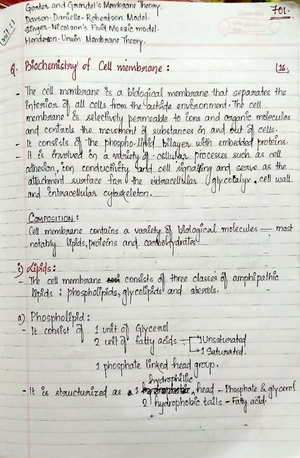 Gorter and Grendel's Membrane Theory.
Dawson-Danielle-Robertson Model.
Singer-Nicolson's Fluid Mosaic model.
Henderson-Unwin Membrane Theory.
701.
Q. Biochemistry of Cell membrane:
- The cell membrane is a biological membrane that separates the
interior of all cells from the outside environment. The cell
membrane is selectively permeable to ions and organic molecules
and controls the movement of substances in and out of cells.
- It consists of the phospho-lipid bilayer with embedded proteins.
- It is involved in a variety of cellular processes such as cell
adhesion, ion conductivity and cell signalling and serve as the
attachment surface for the extracellular glycocalyx, cell wall
and intracellular cytoskeleton.
COMPOSITION:
Cell membrane contains a variety of biological molecules — most
notably lipids, proteins and carbohydrates
i) Lipids:
- The cell membrane consists of three classes of amphipathic
lipids: phospholipids, glycolipids and sterols.
a) Phospholipid:
- It consist of 1 unit of Glycerol
2 unit of fatty acids
1 Unsaturated
1 Saturated.
1 phosphate linked head group.
- It is structurized as 1 hydrophillic head - Phosphate & glycerol
2 hydrophobic tails - Fatty acid.